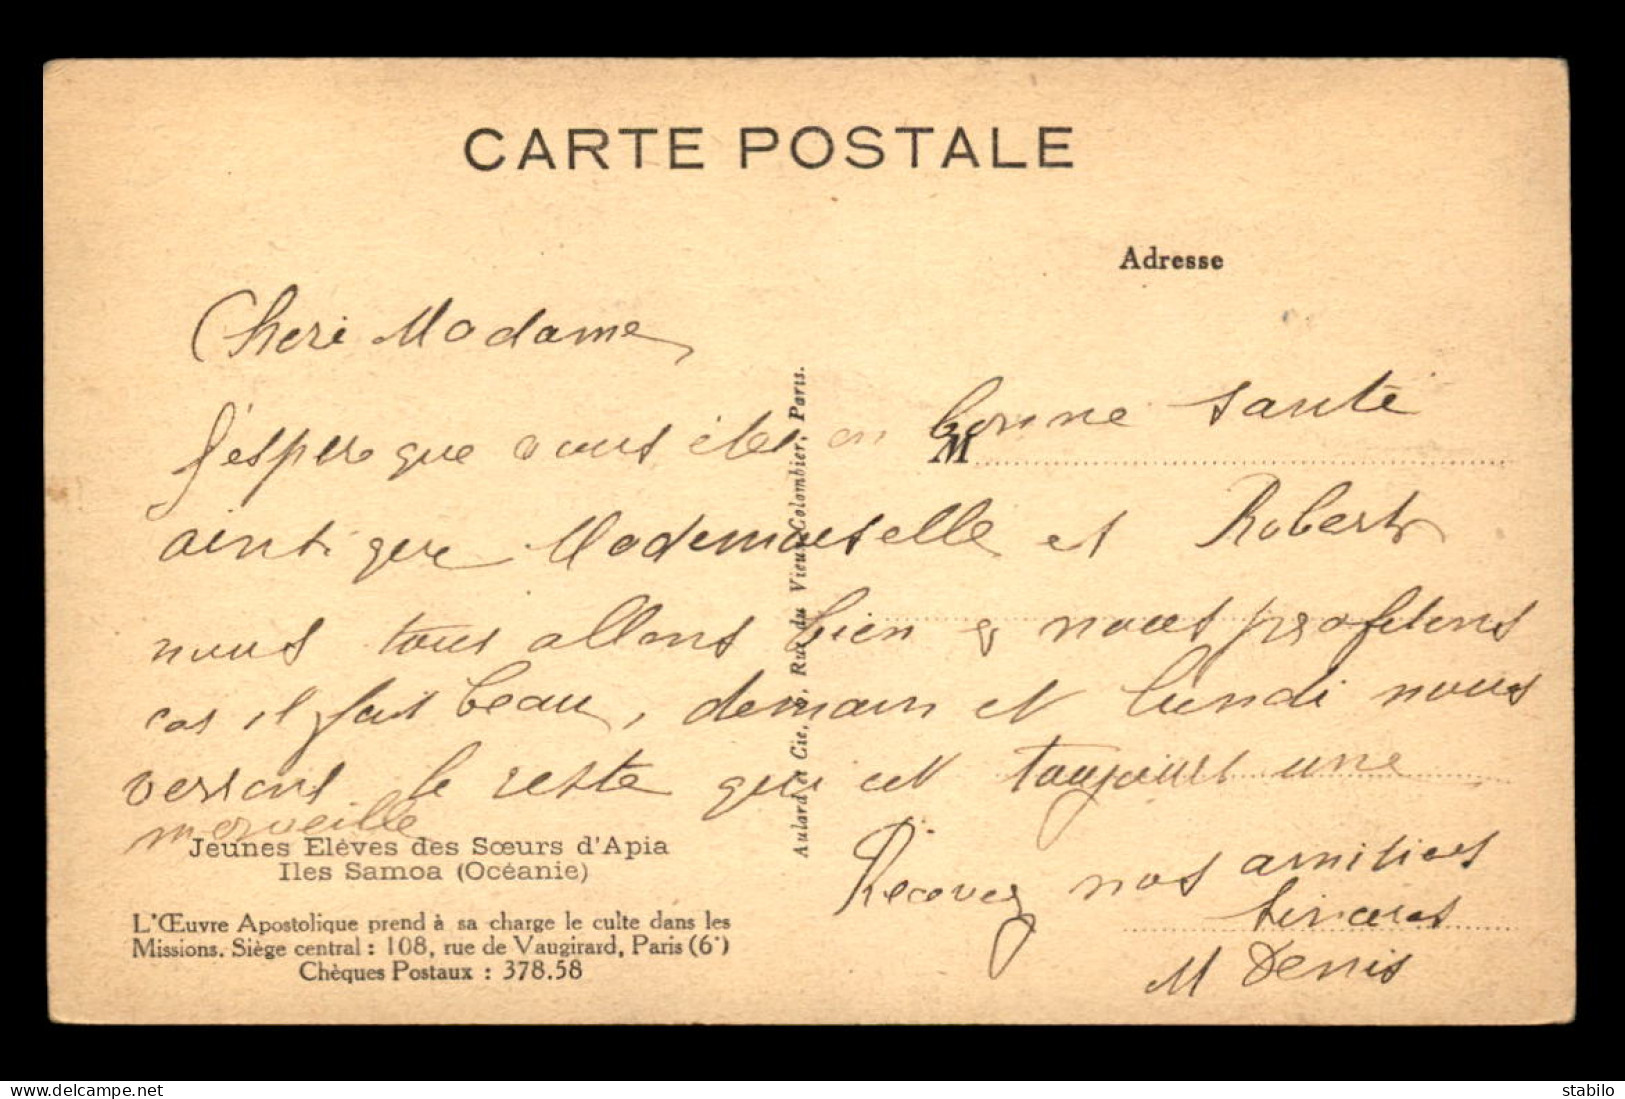 CARTE POSTALE
Adresse
Cheri Madame
J'espere que vous êtes en bonne santé
M
ainsi que Mademoiselle et Robert
nous tous allons bien & nous profitons
car il fait beau, demain et lundi nous
verrons le reste qui est toujours une
merveille
Recevez nos amitiés
sincères
M Denis
Jeunes Elèves des Sœurs d'Apia
Iles Samoa (Océanie)
L'Œuvre Apostolique prend à sa charge le culte dans les
Missions. Siège central : 108, rue de Vaugirard, Paris (6°)
Chèques Postaux : 378.58
Aulard et Cie, Rue du Vieux-Colombier, Paris.
delcampe.net
stabilo